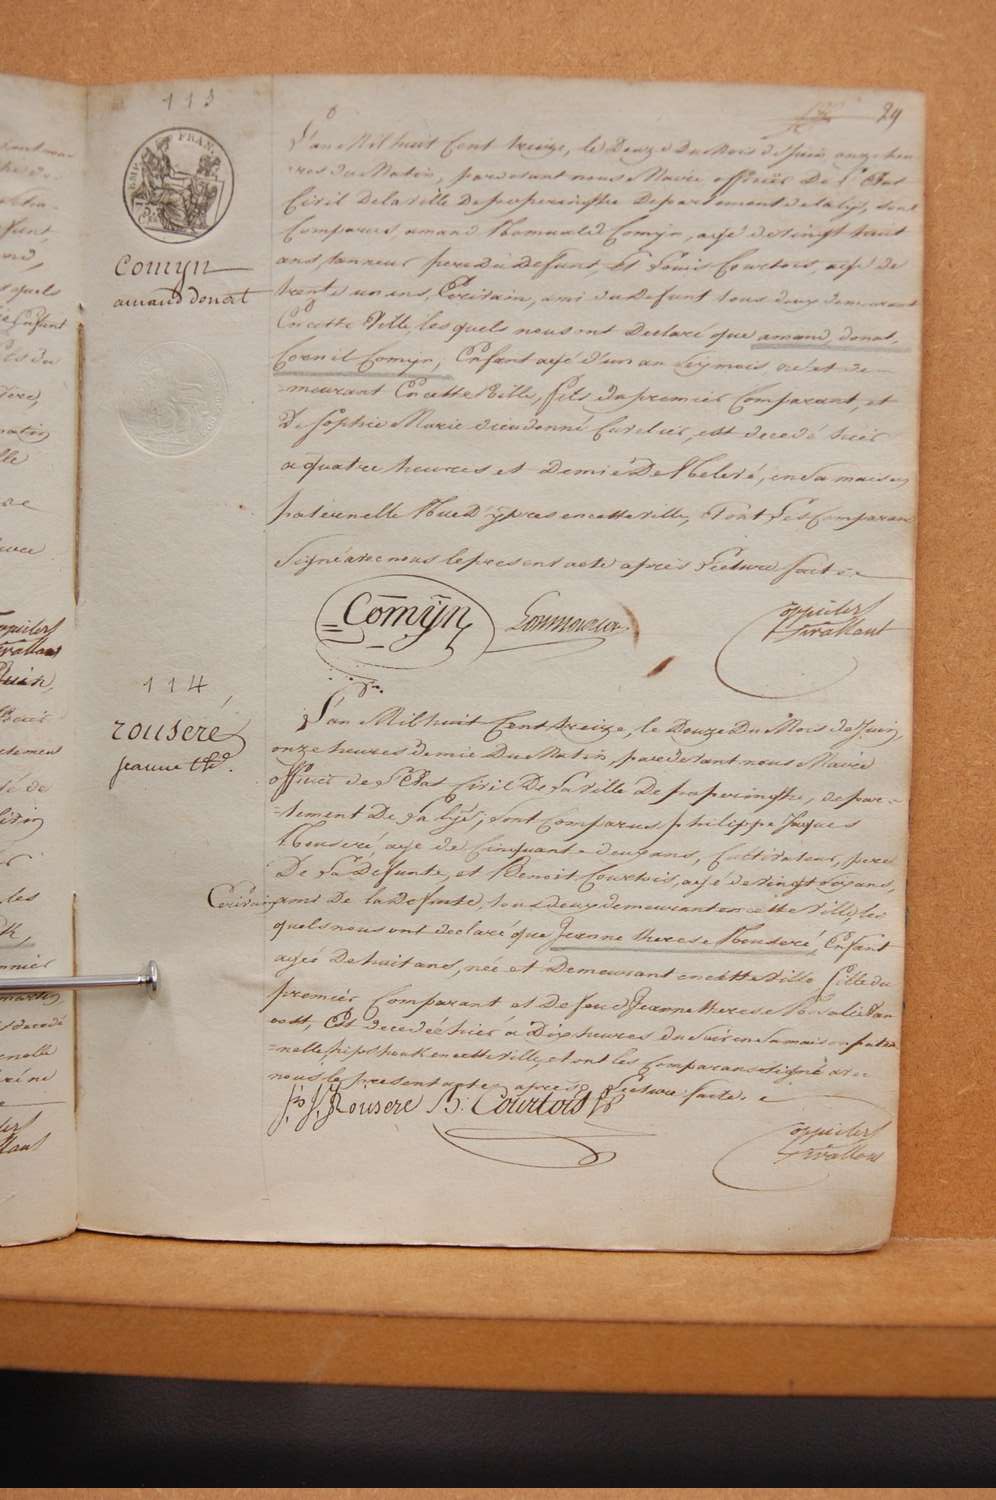 113
29
L'an Mil huit Cent treize, le Douze Du Mois de Juin onze heu
=res du Matin, pardevant nous Maire officier De l'Etat
Civil de la ville De poperinghe Departement de la Lys, sont
Comparus, amand Romuald Comÿn, agé de vingt huit
ans, tanneur pere du defunt, Et Louis Courtois, agé de
trente un ans, Ecrivain, ami du Defunt tous deux demeurant
En cette Ville, les quels nous ont Declaré que amand, donat,
Corneil Comÿn, Enfant agé d'un an six mois né et de=
=meurant En cette Ville, fils du premier Comparant, et
De Sophie Marie dieudonné Cuvelier, est decedé hier
a quatre heures et Demie De relevé, en sa maison
paternelle Rue D'ÿpres en cette ville, et ont les Comparans
Signé avec nous le present acte après Lecture faite
Comyn
amand donat
TIMBRE FRAN.
Comÿn
114
Rouseré
jeanne thé.
L'an Mil huit Cent treize, le Douze Du Mois de Juin,
onze heures demie Du Matin, pardevant nous Maire
officier de L'Etat Civil De La Ville De poperinghe, depar=
=tement De La Lÿs, sont Comparus philippe Jaques
Rouseré, agé de Cinquante deux ans, Cultivateur, pere
De La Defunte, et Benoit Courtois, agé de vingt six ans,
Ecrivain ami De la Defunte, tous deux demeurant en cette Ville, les
quels nous ont declaré que Jeanne therese Rouseré, Enfant
agée De huit ans, née et Demeurant en cette ville fille du
premier Comparant et De feue Jeanne therese Rosalie Van
est decedée hier à Dix heures du soir en sa maison pater
=nelle, hipshouk en cette ville, et ont les Comparans signé avec
nous le present acte, apres Lecture faite.
J. Rouseré B. Courtois